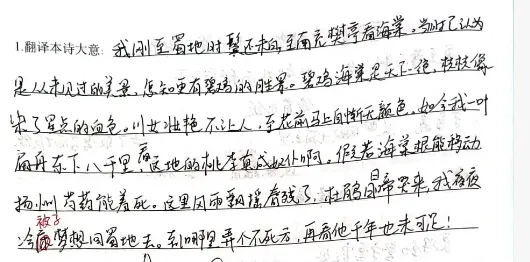 1.翻译本诗大意: 我刚至蜀地时鬓还未白,至南充樊亭看海棠。当时了认为
是从未见过的美景,怎知更有碧鸡的胜景。碧鸡海棠是天下一绝,枝枝像
染了星点的血色。川女壮艳不让人,至花前马上自惭无颜色。如今我一叶
扁舟东下八千里,看这地的桃李真成奴仆啊。假若海棠根能移动
扬州芍药能羞死。这里风雨飘摇春残了,杜鹃日啼哭来,我夜夜
冷被子梦想回蜀地去。到哪里弄个不死方,再看他千年也未可足!